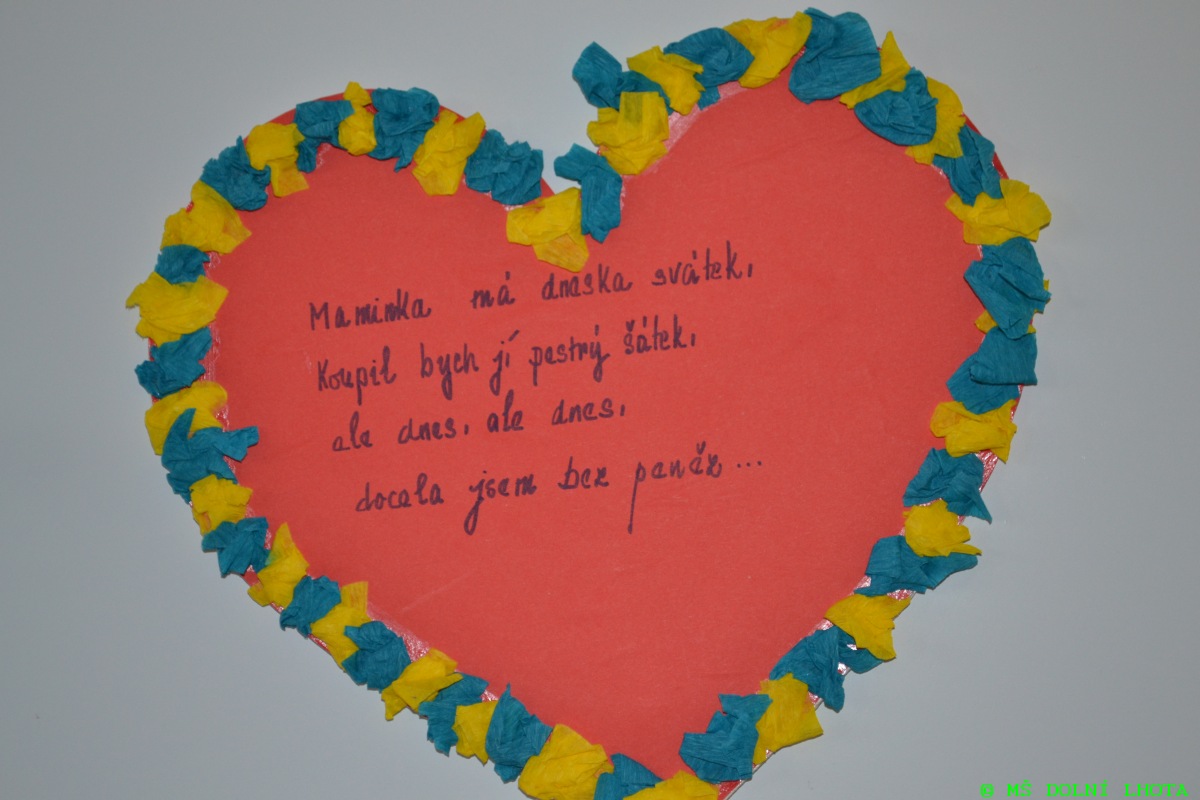 Maminka má dneska svátek,
Koupil bych jí pestrý šátek,
ale dnes, ale dnes,
docela jsem bez peněz...
© MŠ DOLNÍ LHOTA